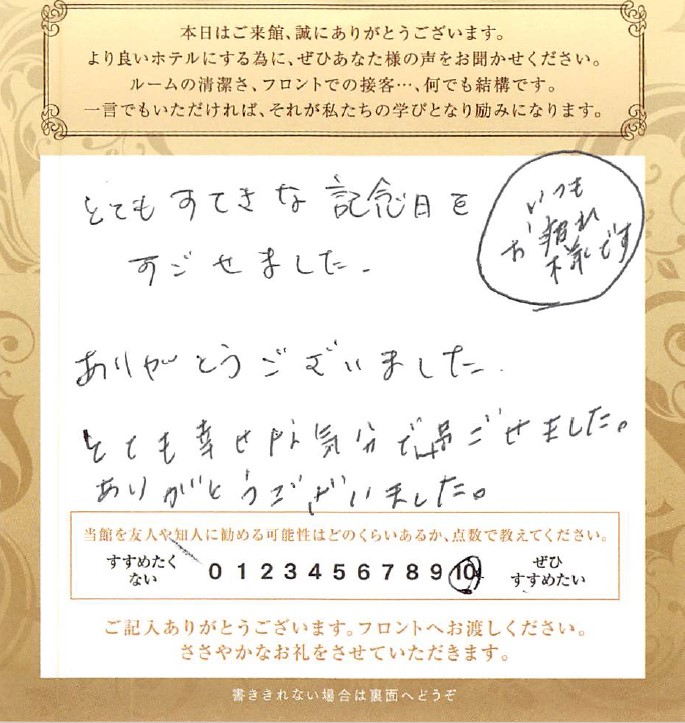 本日はご来館、誠にありがとうございます。
より良いホテルにする為に、ぜひあなた様の声をお聞かせください。
ルームの清潔さ、フロントでの接客…、何でも結構です。
一言でもいただければ、それが私たちの学びとなり励みになります。
とてもすてきな記念日を
すごせました.
いつも
お疲れ
様です
ありがとうございました.
とても幸せな気分で過ごせました。
ありがとうございました。
当館を友人や知人に勧める可能性はどのくらいあるか、点数で教えてください。
すすめたく
ない
0 1 2 3 4 5 6 7 8 9 10
ぜひ
すすめたい
ご記入ありがとうございます。フロントへお渡しください。
ささやかなお礼をさせていただきます。
書ききれない場合は裏面へどうぞ